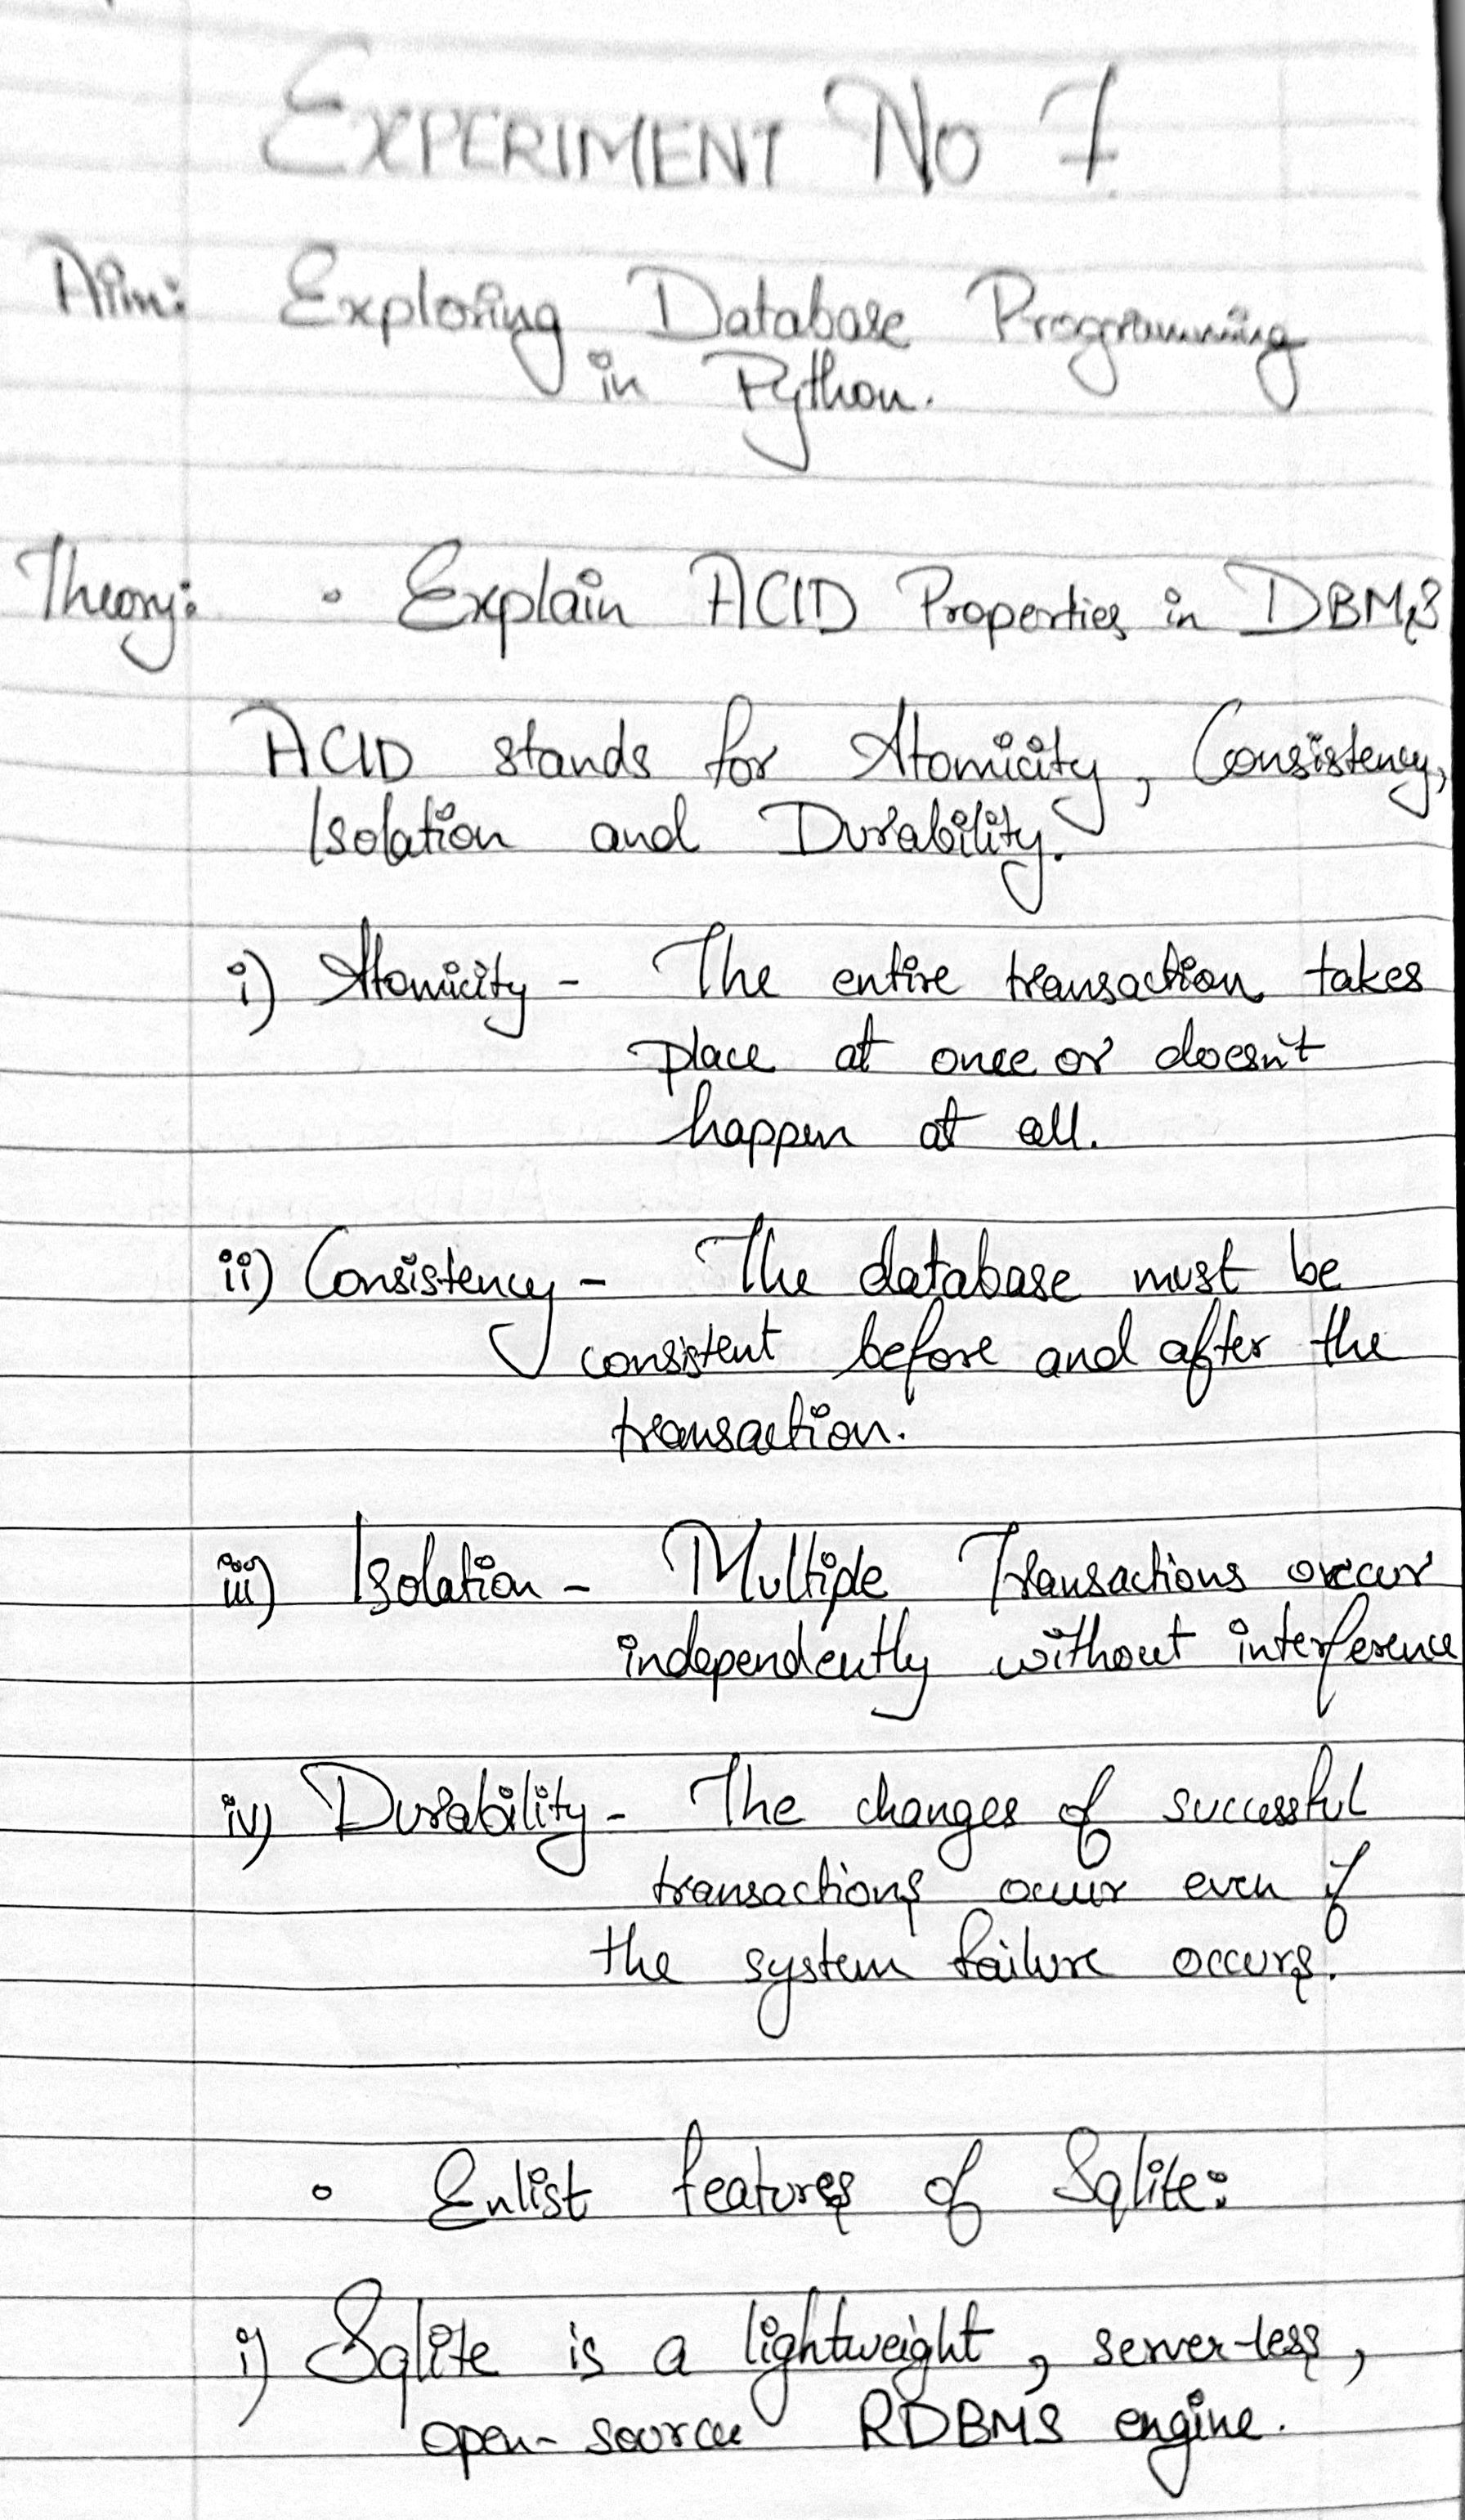 EXPERIMENT No 7
Aim: Exploring Database Programming
in Python.
Theory: • Explain ACID Properties in DBMS
ACID stands for Atomicity, Consistency,
Isolation and Durability.
i) Atomicity - The entire transaction takes
place at once or doesn't
happen at all.
ii) Consistency - The database must be
consistent before and after the
transaction.
iii) Isolation - Multiple Transactions occur
independently without interference
iv) Durability - The changes of successful
transactions occur even if
the system failure occurs.
• Enlist features of Sqlite:
i) Sqlite is a lightweight, server-less,
open-source RDBMS engine.